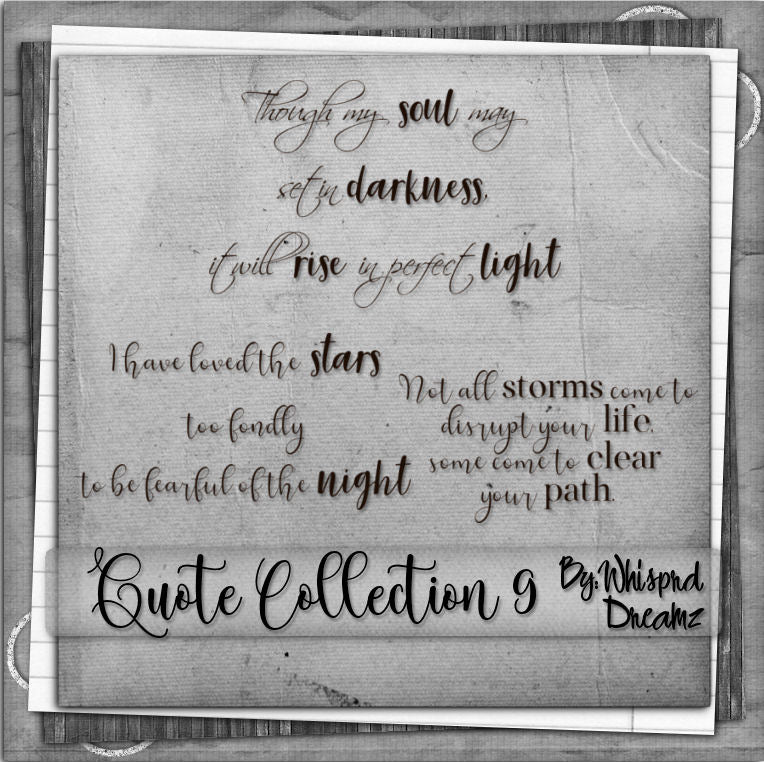 Though my soul may
set in darkness,
it will rise in perfect light
I have loved the stars
too fondly
to be fearful of the night
Not all storms come to
disrupt your life,
some come to clear
your path.
Quote Collection 9
By: Whisprd
Dreamz